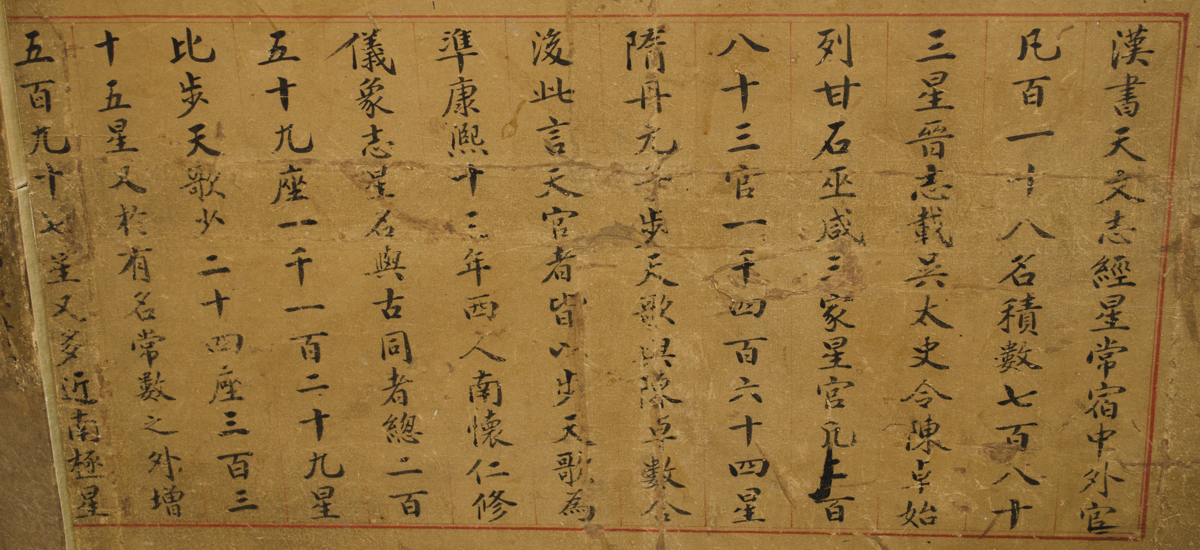 漢書天文志經星常宿中外官
凡百一十八名積數七百八十
三星晉志載吳太史令陳卓始
列甘石巫咸三家星官凡二百
八十三官一千四百六十四星
隋丹元子步天歌與陳卓數合
後此言天官者皆以步天歌為
準康熙十三年西人南懷仁修
儀象志星名與古同者總二百
五十九座一千一百二十九星
比步天歌少二十四座三百三
十五星又於有名常數之外增
五百九十七星又多近南極星